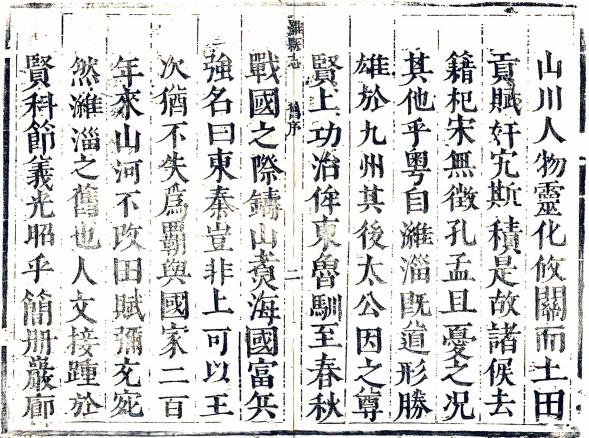 山川人物靈化攸關而土田
貢賦奸宄斯積是故諸侯去
籍杞宋無徵孔孟且憂之况
其他乎粵自濰淄既道形勝
雄於九州其後太公因之尊
賢上功治侔東魯馴至春秋
濰縣志 舊序 二
戰國之際鑄山煮海國富兵
強名曰東秦豈非上可以王
次猶不失爲覇與國家二百
年來山河不改田賦彌充宛
然濰淄之舊也人文接踵於
賢科節義光昭乎簡册巖廊